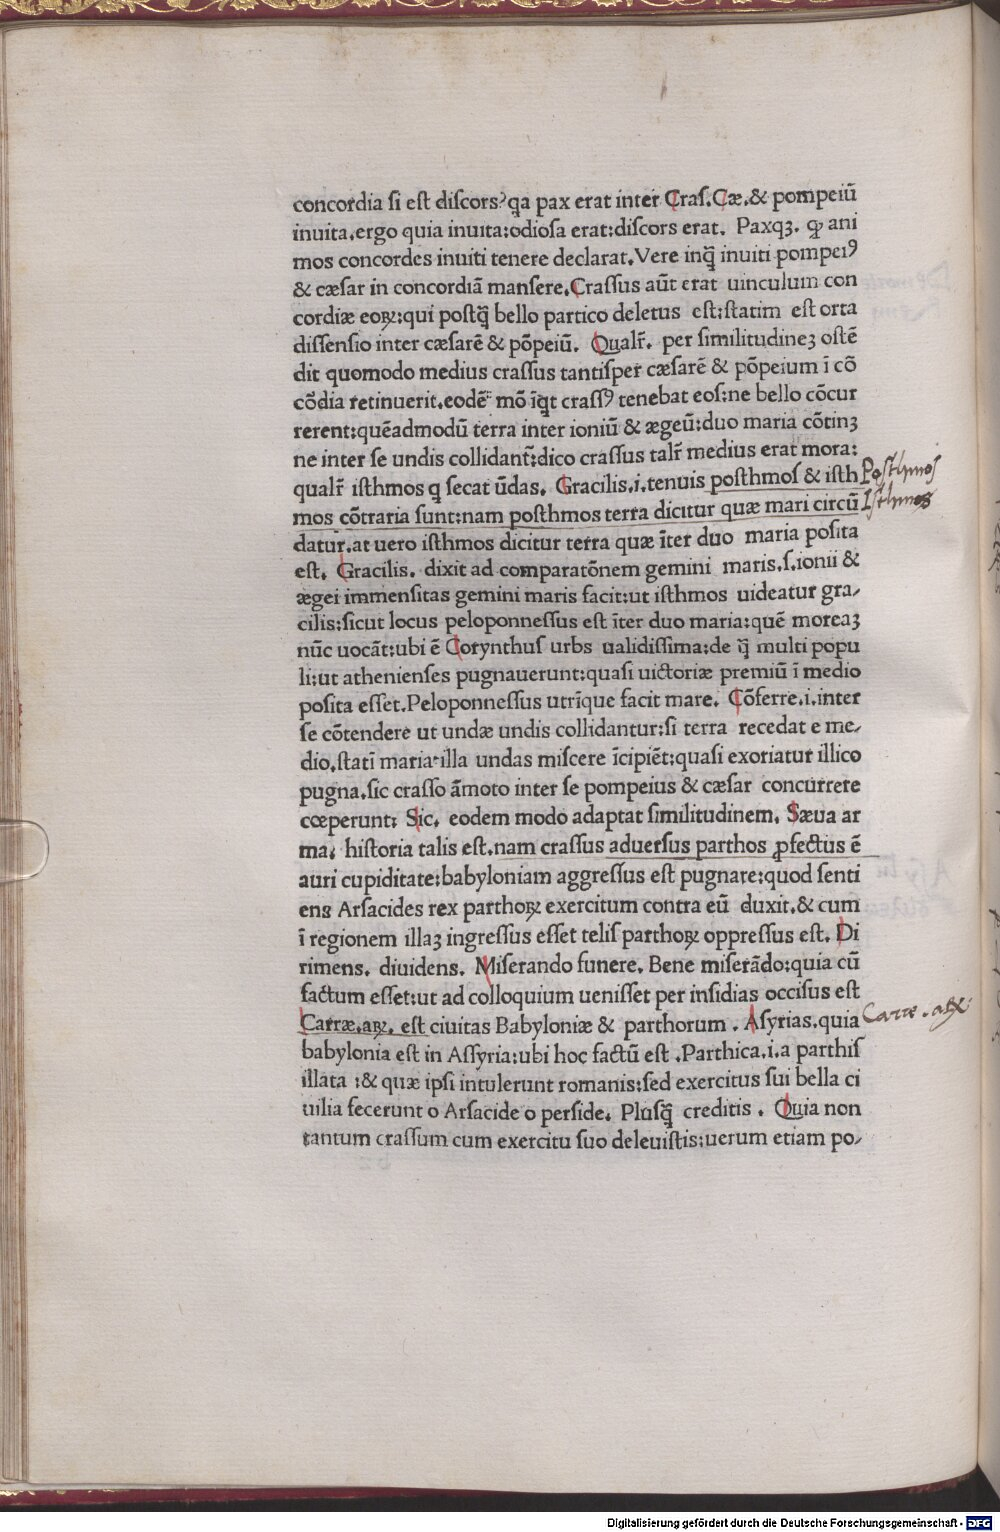 concordia si est discorsꝰ qa pax erat inter Cras.Cæ.& pompeiũ
inuita.ergo quia inuita:odiosa erat:discors erat. Paxqꝫ. ꝙ ani
mos concordes inuiti tenere declarat.Vere inq̃ inuiti pompeiꝰ
& cæsar in concordiã mansere.Crassus aũt erat uinculum con
cordiæ eoꝝ:qui postq̃ bello partico deletus est:statim est orta
dissensio inter cæsarẽ & põpeiũ. Qualr̃. per similitudineꝫ ostẽ
dit quomodo medius crassus tantisper cæsarẽ & põpeium ĩ cõ
cõdia retinuerit.eodẽ mõ ĩqt crassꝰ tenebat eos:ne bello cõcur
rerent:quẽadmodũ terra inter ioniũ & ægeũ:duo maria cõtinꝫ
ne inter se undis collidant̃:dico crassus talr̃ medius erat mora:
qualr̃ isthmos q secat ũdas. Gracilis.i.tenuis posthmos & isth
Posthmos
mos cõtraria sunt:nam posthmos terra dicitur quæ mari circũ
Isthmos
datur.at uero isthmos dicitur terra quæ ĩter duo maria posita
est. Gracilis. dixit ad comparatõnem gemini maris.s.ionii &
ægei immensitas gemini maris facit:ut isthmos uideatur gra⸗
cilis:sicut locus peloponnessus est ĩter duo maria:quẽ moreaꝫ
nũc uocãt:ubi ẽ Corynthus urbs ualidissima:de q̃ multi popu
li:ut athenienses pugnauerunt:quasi uictoriæ premiũ ĩ medio
posita esset.Peloponnessus utrĩque facit mare. Cõferre.i.inter
se cõtendere ut undæ undis collidantur:si terra recedat e me⸗
dio.statĩ maria illa undas miscere ĩcipiẽt:quasi exoriatur illico
pugna.sic crasso ãmoto inter se pompeius & cæsar concurrere
cœperunt: Sic. eodem modo adaptat similitudinem. Sæua ar
ma. historia talis est.nam crassus aduersus parthos ꝓfectus ẽ
auri cupiditate:babyloniam aggressus est pugnare:quod senti
ens Arsacides rex parthoꝝ exercitum contra eũ duxit.& cum
ĩ regionem illaꝫ ingressus esset telis parthoꝝ oppressus est. Di
rimens. diuidens. Miserando funere. Bene miserãdo:quia cũ
factum esset:ut ad colloquium uenisset per insidias occisus est
Carræ.aꝝ. est ciuitas Babyloniæ & parthorum . Asyrias.quia
Carræ . aꝝ.
babylonia est in Assyria:ubi hoc factũ est .Parthica.i.a parthis
illata :& quæ ipsi intulerunt romanis:sed exercitus sui bella ci
uilia fecerunt o Arsacide o perside. Plusq̃ creditis . Quia non
tantum crassum cum exercitu suo deleuistis:uerum etiam po⸗
Digitalisierung gefördert durch die Deutsche Forschungsgemeinschaft - DFG